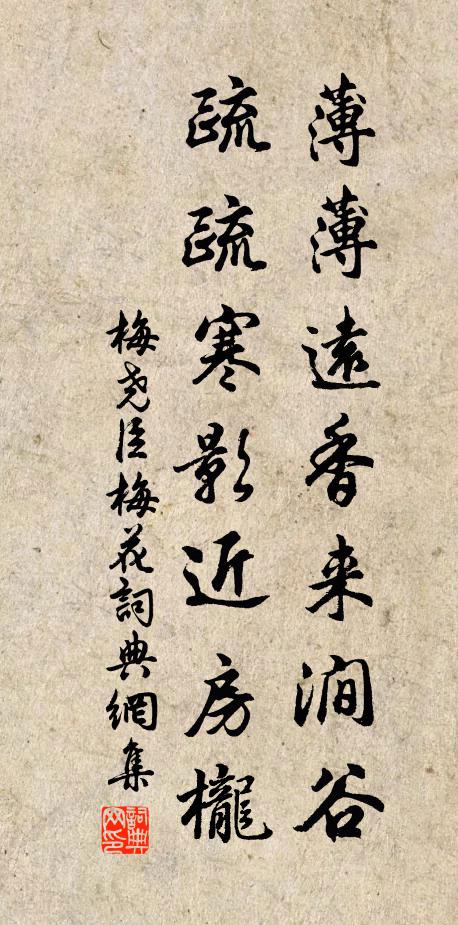 薄薄遠香来澗谷
疏疏寒影近房櫳
梅尭臣梅花詞典網集
詞典网印